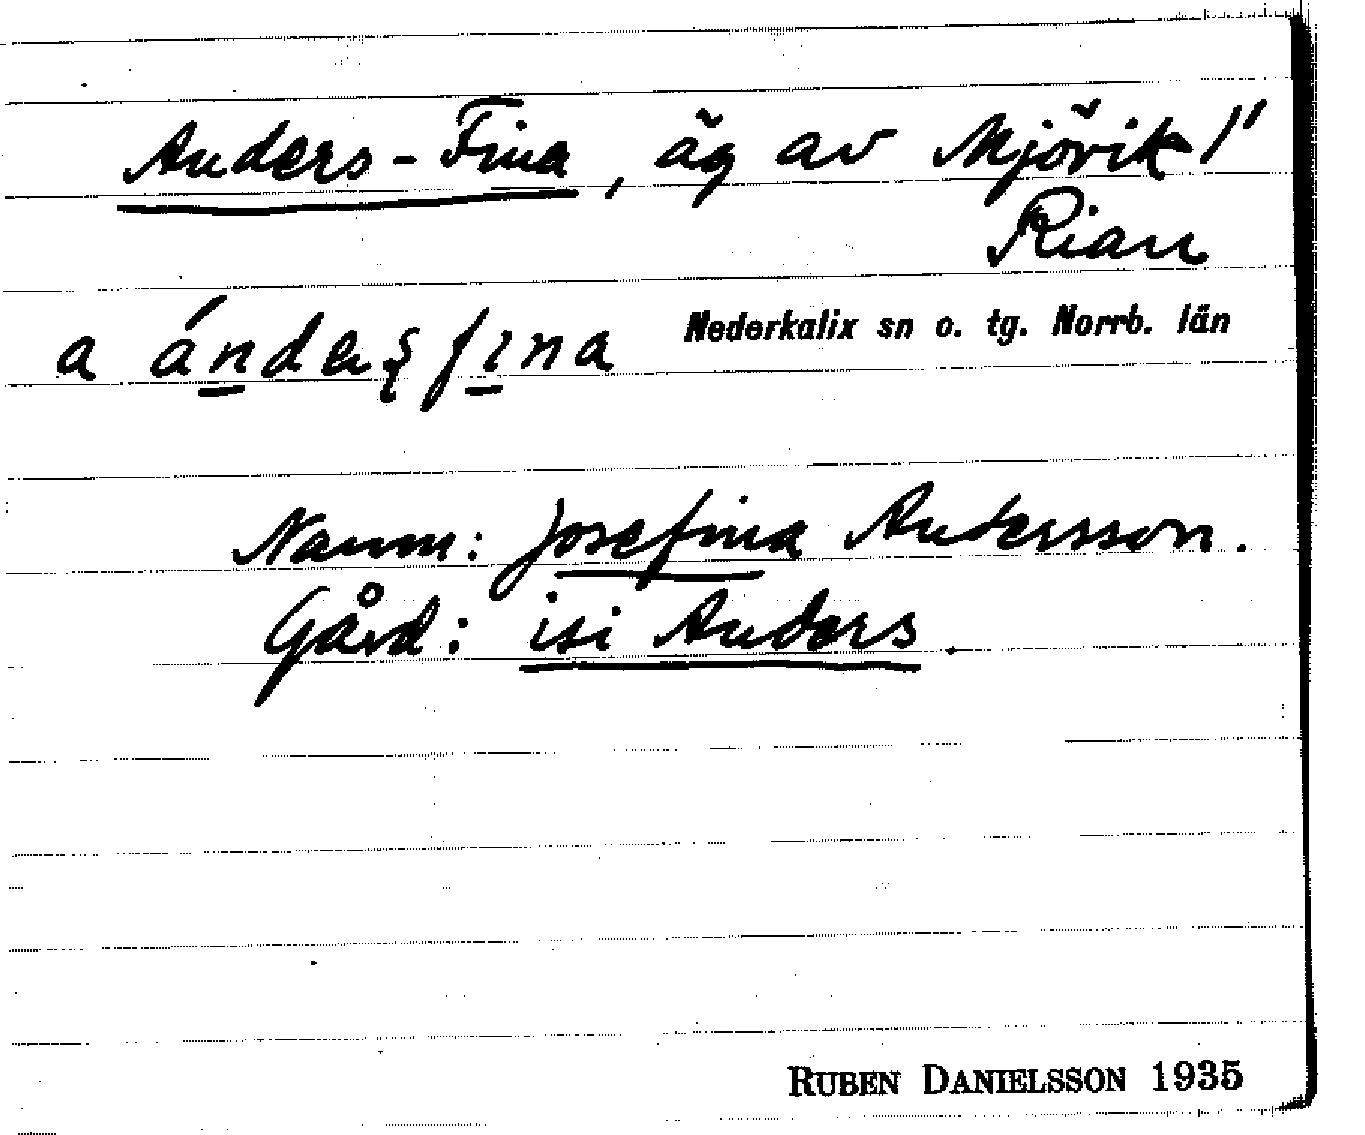 Anders-Fina, äg av Mjövik 1/1
Rian
a ándeʂfina Nederkalix sn o. tg. Norrb. län
Namn: Josefina Andersson.
Gård: isi Anders.
RUBEN DANIELSSON 1935